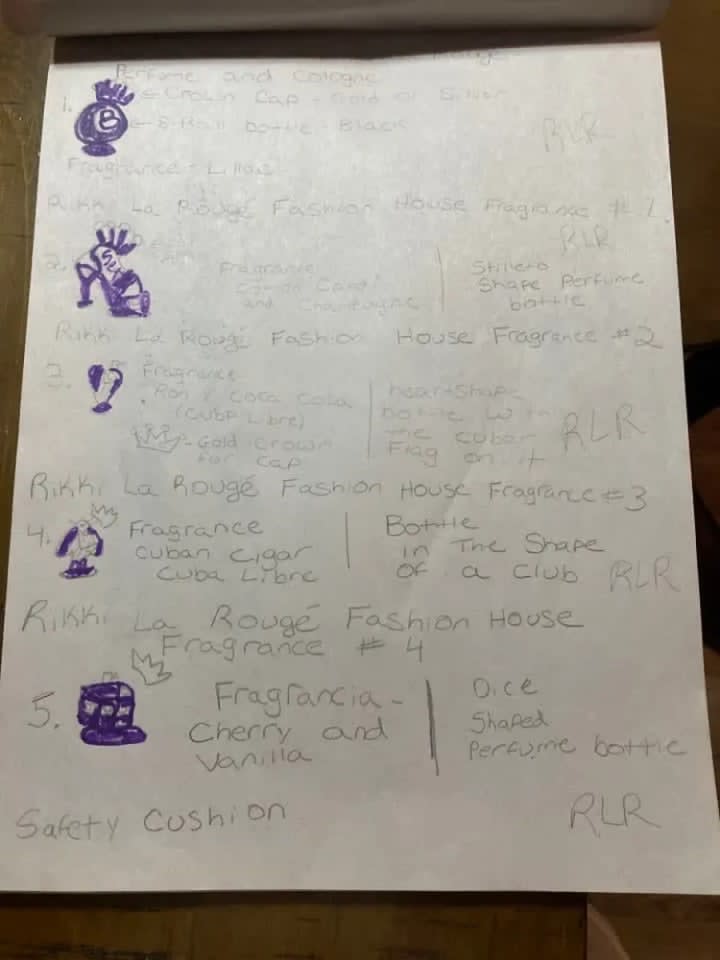 Perfume and Cologne
1. ← Crown Cap - Gold or Silver
B ← 8-Ball bottle - Black
RLR
Fragrance - Lilac
Rikki La Rougé Fashion House Fragrance # 1.
RLR
2. Fragrance
Cotton Candy
and Champagne
Stileto
Shape Perfume
bottle
Rikki La Rougé Fashion House Fragrance #2
3. Fragrance
. Ron / Coca Cola
(Cuba Libre)
- Gold Crown
for Cap
heart Shape
bottle with
the Cuban
Flag on it
RLR
Rikki La Rougé Fashion House Fragrance #3
4. Fragrance
Cuban Cigar
Cuba Libre
Bottle
in The Shape
of a Club
RLR
Rikki La Rougé Fashion House
Fragrance # 4
5. Fragrancia -
Cherry and
Vanilla
Dice
Shaped
Perfume bottle
Safety Cushion
RLR